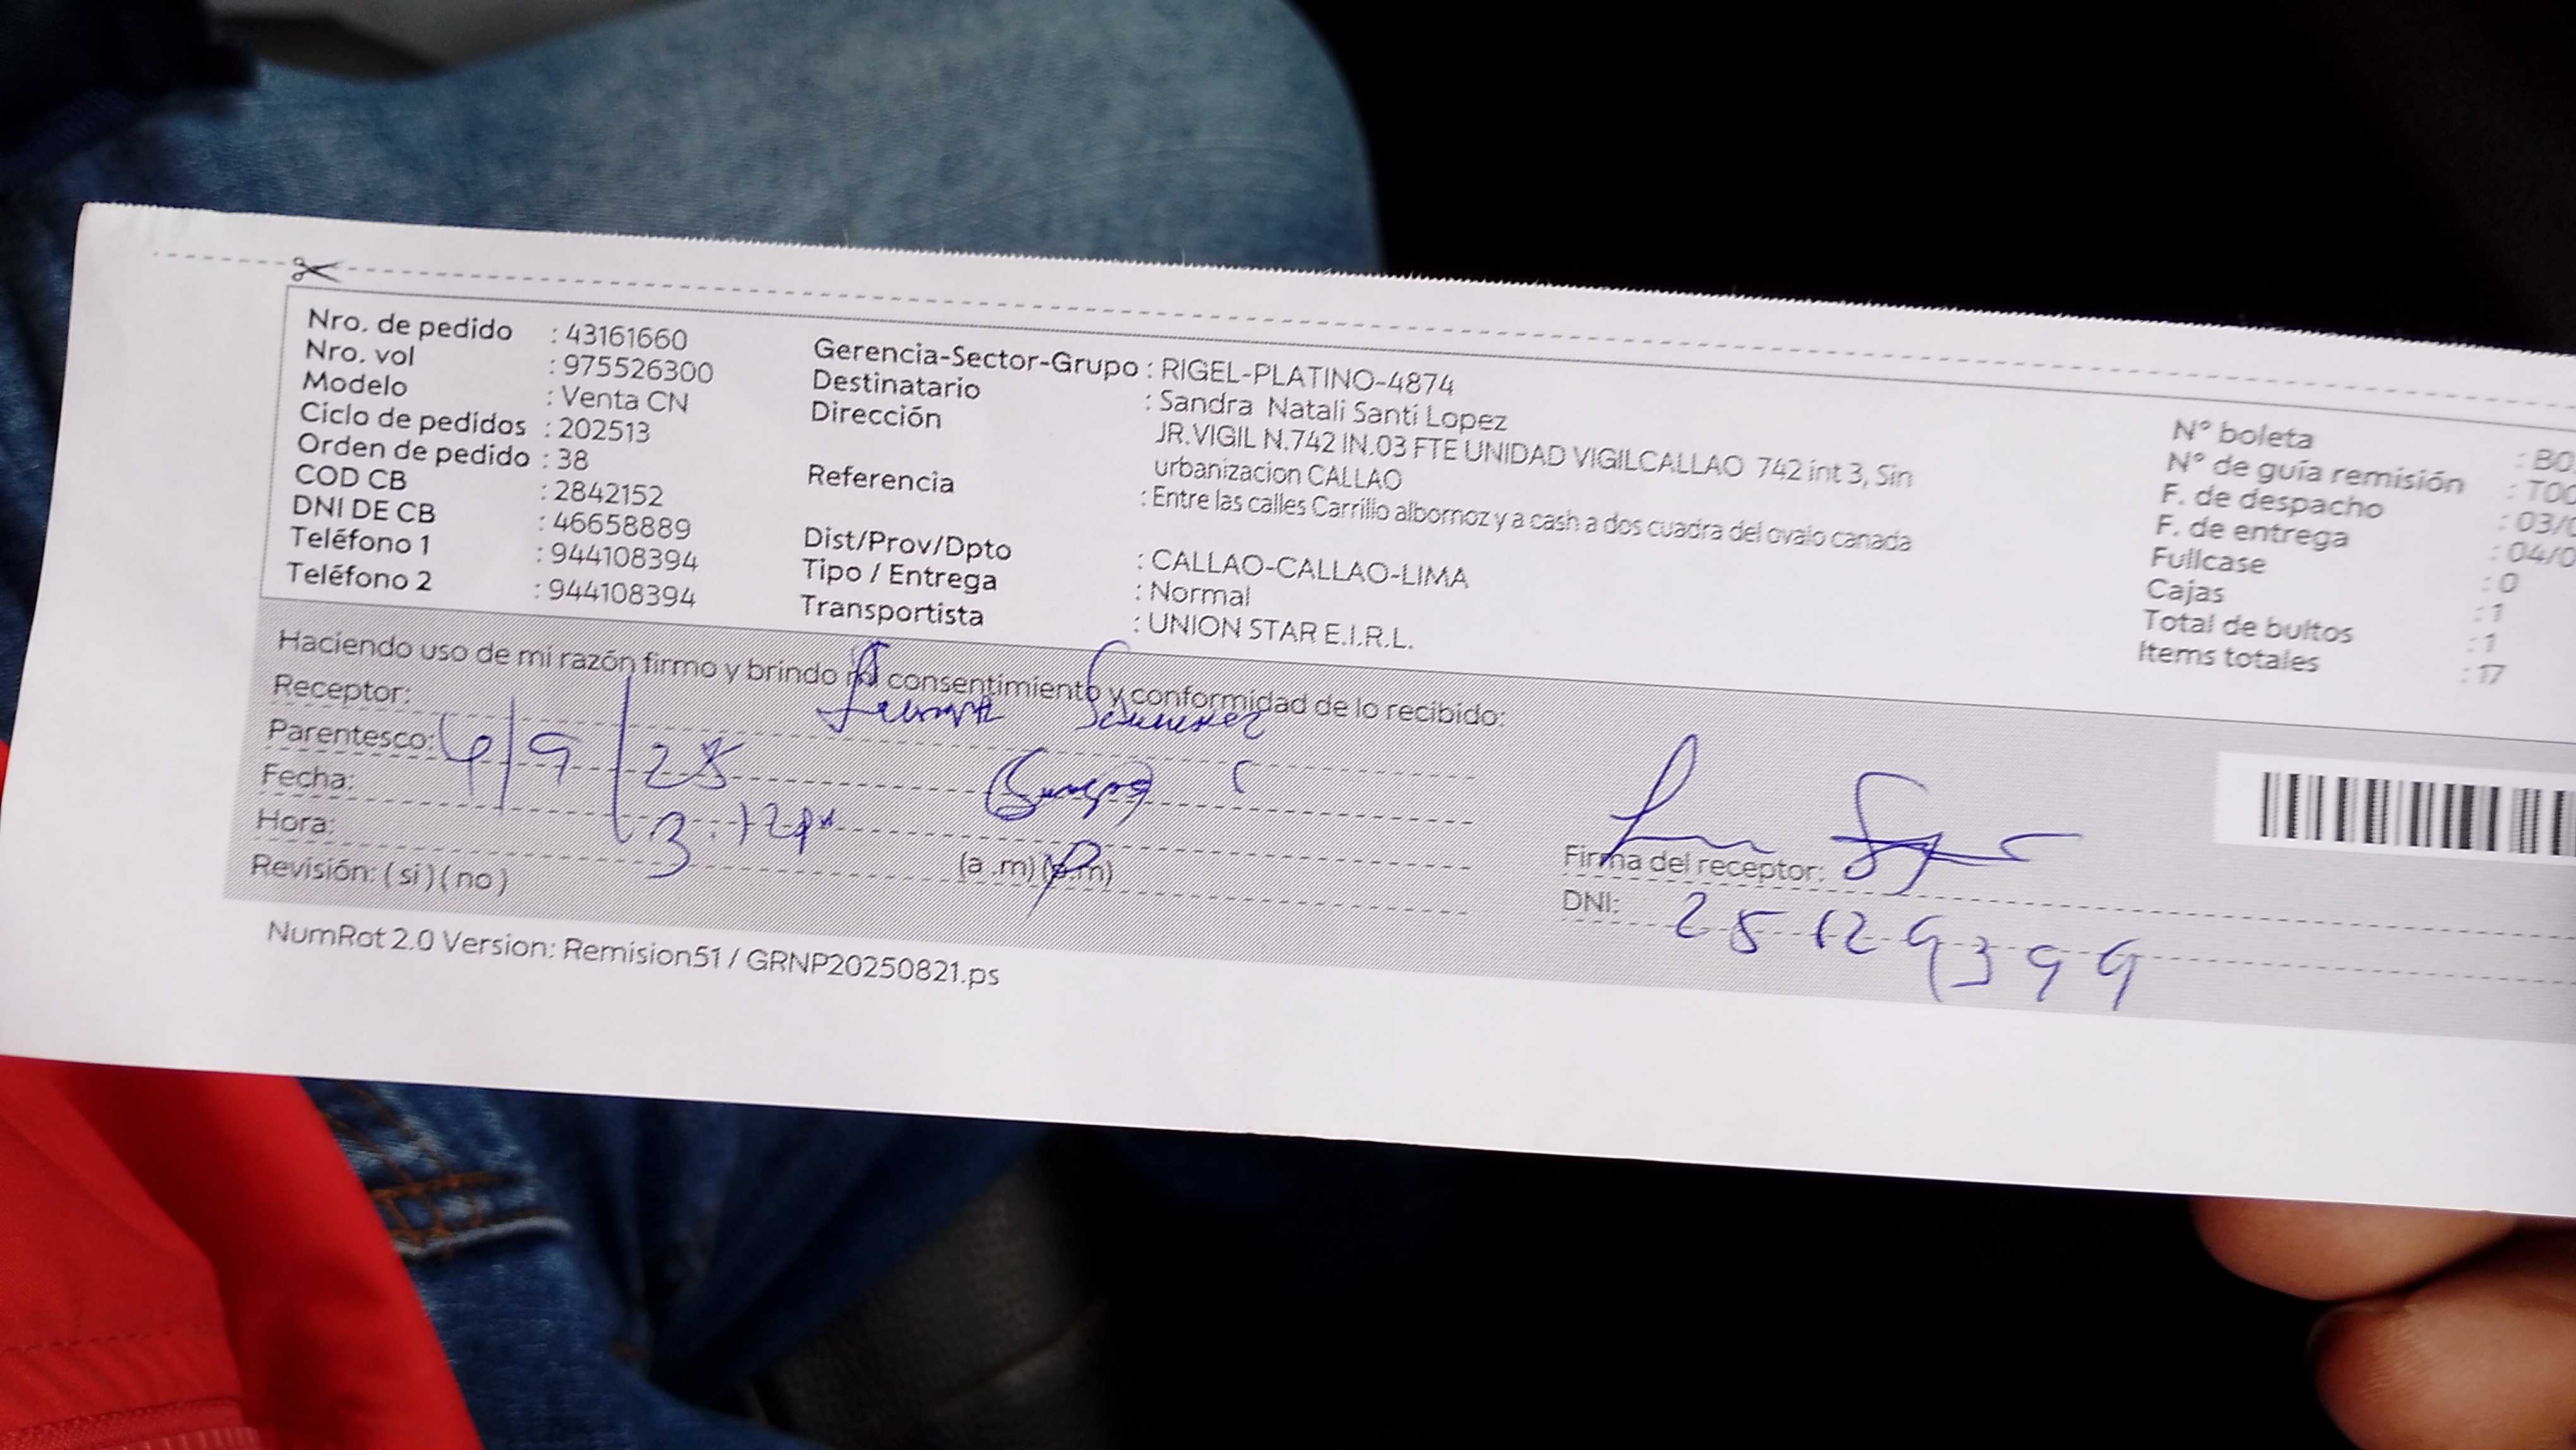 Nro. de pedido : 43161660
Nro. vol : 975526300
Modelo : Venta CN
Ciclo de pedidos : 202513
Orden de pedido : 38
COD CB : 2842152
DNI DE CB : 46658889
Teléfono 1 : 944108394
Teléfono 2 : 944108394
Gerencia-Sector-Grupo : RIGEL-PLATINO-4874
Destinatario : Sandra Natali Santi Lopez
Dirección JR.VIGIL N.742 IN.03 FTE UNIDAD VIGILCALLAO 742 int 3, Sin
urbanizacion CALLAO
Referencia : Entre las calles Carrillo albornoz y a cash a dos cuadra del ovalo canada
Dist/Prov/Dpto : CALLAO-CALLAO-LIMA
Tipo / Entrega : Normal
Transportista : UNION STAR E.I.R.L.
N° boleta : B0
N° de guía remisión : T00
F. de despacho : 03/0
F. de entrega : 04/0
Fullcase : 0
Cajas : 1
Total de bultos : 1
Items totales : 17
Haciendo uso de mi razón firmo y brindo mi consentimiento y conformidad de lo recibido:
Receptor:
Parentesco:
Fecha: /9/25
Hora: 3.12 (a .m) (p.m)
Revisión: ( si ) ( no )
Firma del receptor:
DNI: 25129399
NumRot 2.0 Version: Remision51 / GRNP20250821.ps